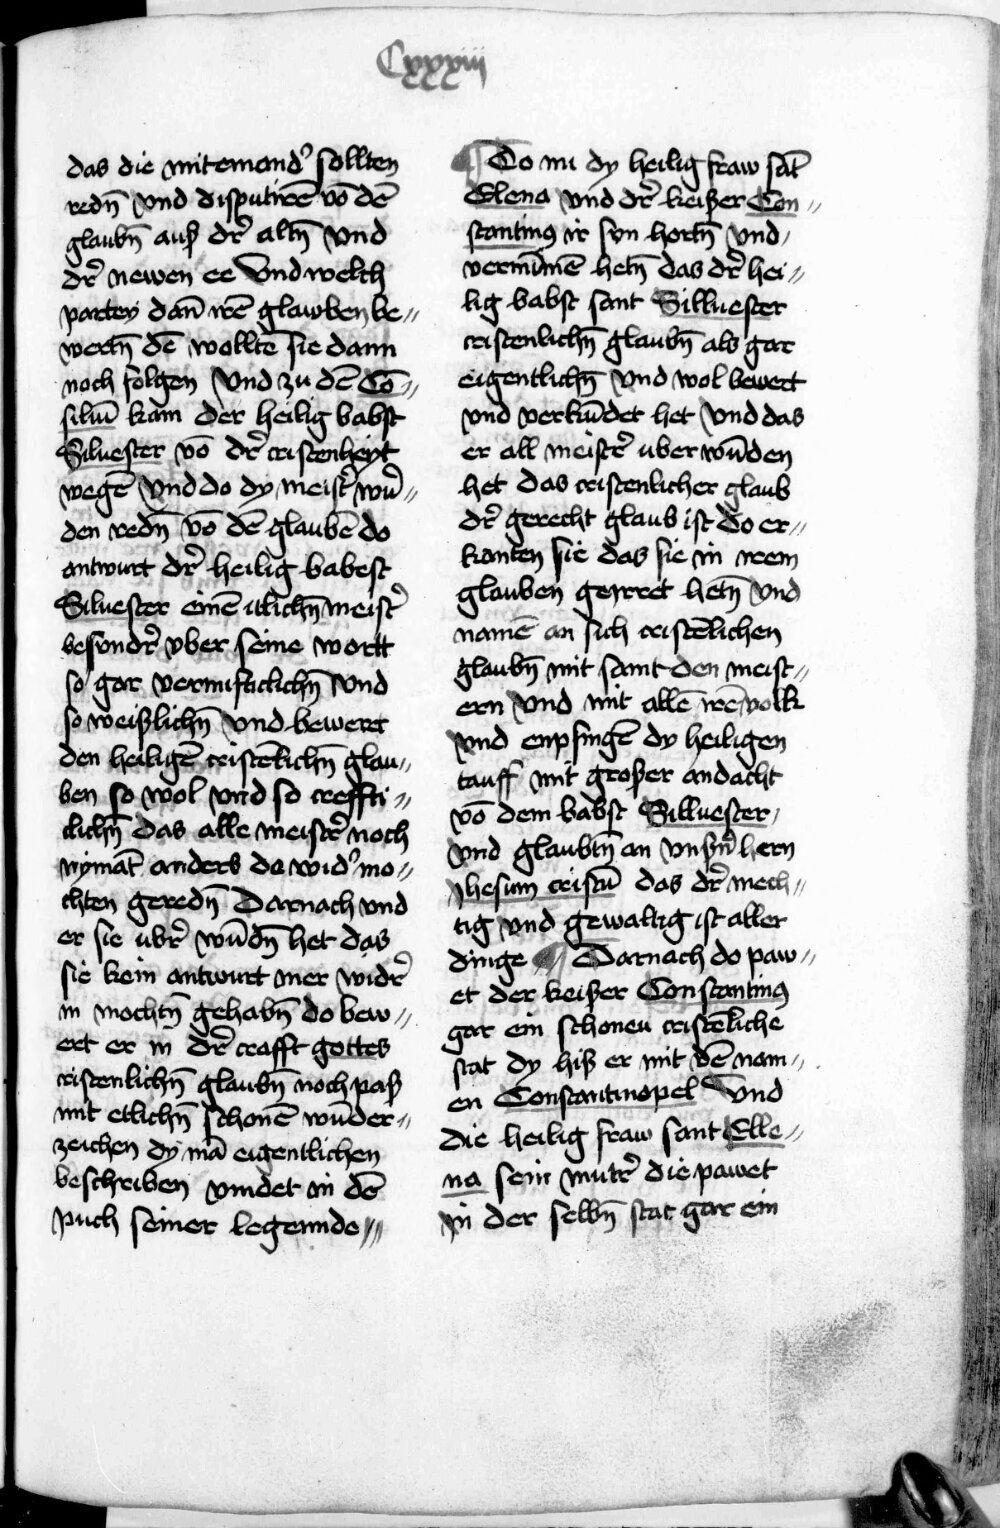 Cxxxiii
das die miteinandˀ sollten
redn̄ vnd disputirē vō dē
glaubn̄ auß dr̄ altn̄ vnd
dr̄ newen ee Vnd welch
partey dan̄ irē glawben be〃
wertn̄ dē wolltē sie dann
noch folgen Vnd zu dē Cō〃
siliū kam der heilig babst
Siluester vō dr̄ cristenheyt
wegē Vnd do dy meistr̄ wur̄〃
den redn̄ vō dē glaubē do
antwurt dr̄ heilig babest
Siluester einē itlichn̄ meistr̄
besondr̄ vber seine wortt
so gar vernufticlichn̄ vnd
so weißlichn̄ vnd beweret
den heiligē cristēlichn̄ glau〃
ben so wol vnd so creffti〃
clichn̄ das alle meistr̄ noch
nymāt anders da widˀ mo〃
chten geredn̄ Darnach vnd
er sie ubr̄ wūdn̄ het das
sie kein antwurt mer widr̄
in mochtn̄ gehabn̄ do bew〃
ert er in dr̄ crafft gottes
cristenlichn̄ glaubn̄ noch paß
mit etlichn̄ schonē wūder〃
zeichen dy mā eigentlichen
beschriben vindet in dē
puch seiner legennde
Do nu dy heilig fraw sāt
Elena vnd dr̄ keißer Con〃
stantinus ir syn hortn̄ vnd
vernūmē hetn̄ das dr̄ hei〃
lig babst sant Silluester
cristenlichn̄ glaubn̄ als gar
eigentlichn̄ vnd wol bewert
vnd verkūdet het Vnd das
er all meistr̄ uber wūden
het das cristenlicher glaub
dr̄ gerecht glaub ist do er〃
kanten sie das sie in irem
glauben geirret hetn̄ Vnd
namē an sich cristēlichen
glaubn̄ mit samt den meist〃
ern vnd mit allē irē volk
vnd enpfingē dy heiligen
tauff mit großer andacht
vō dem babst Silluester
vnd glaubtn̄ an vnßn̄ hern
Jhesum cristū das dr̄ mech〃
tig vnd gewaltig ist aller
dinge Darnach do paw〃
et der keißer Constantinus
gar ein schonen cristēliche
stat dy hiß er mit dē nam〃
en Constantinopel Vnd
die heilig fraw sant Elle〃
na sein mutr̄ die pawet
in der selbn̄ stat gar ein